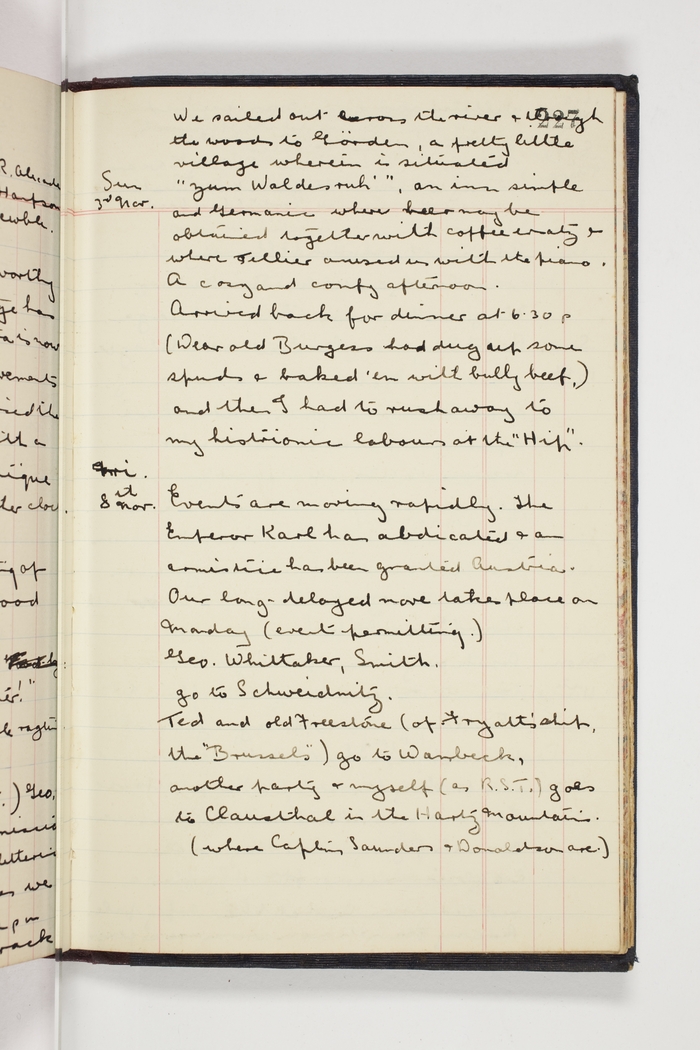 227
We sailed out across the river & through
the woods to Görden, a pretty little
village wherein is situated
Sun
3rd Nov.
"Zum Waldesruh'", an inn simple
and Germanic where beer may be
obtained together with coffee ersatz &
where Tellier amused us with the piano.
A cosy and comfy afternoon.
Arrived back for dinner at 6.30 p
(Dear old Burgess had dug up some
spuds & baked 'em with bully beef,)
and then I had to rush away to
my histrionic labours at the "Hip".
Fri.
8th Nov.
Events are moving rapidly. The
Emperor Karl has abdicated & an
armistice has been granted Austria.
Our long-delayed move takes place on
Monday (event permitting.)
Geo. Whittaker, Smith.
go to Schweidnitz.
Ted and old Freestone (of Fryatt's ship,
the "Brussels") go to Wambeck,
another party & myself (as R.S.T.) goes
to Clausthal in the Hartz Mountains.
(where Saunders & Donaldson are.)
R. Alex
Hartson
worthy
ge has
is now
vements
ith a
nique
ter clock
g of
ood
Geo.
missio
as we